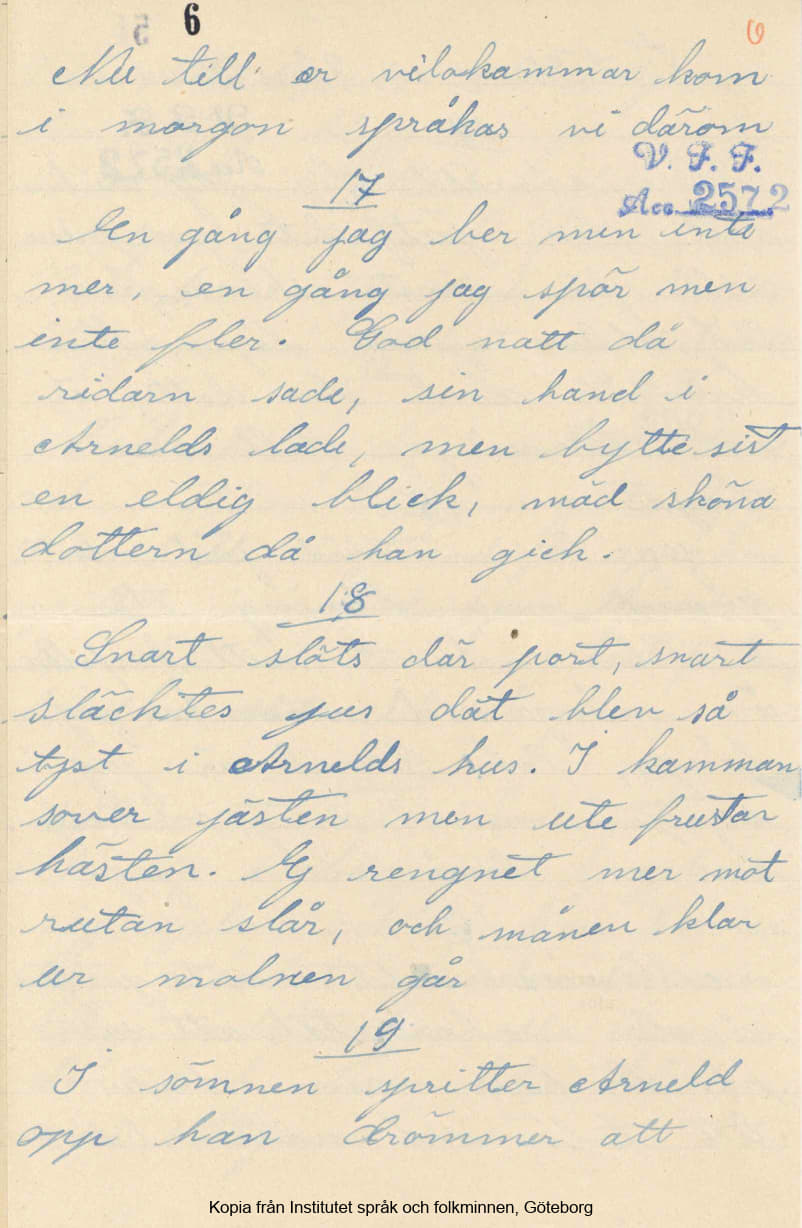 6
Nu till er vilokammar kom
i morgon språkas vi därom
V. F. F.
Acc. 2572
17
En gång jag ber men inte
mer, en gång jag spör men
inte fler. God natt då
ridarn sade, sin hand i
Arnelds lade, men bytte sist
en eldig blick, mäd sköna
dottern då han gick.
18
Snart slöts där port, snart
släcktes jus dät blev så
tyst i Arnelds hus. I kamman
sover jästen men ute frustar
hästen. Ej rengnet mer mot
rutan slår, och månen klar
ur molnen går
19
I sömnen spritter Arneld
opp han drömmer att
Kopia från Institutet språk och folkminnen, Göteborg